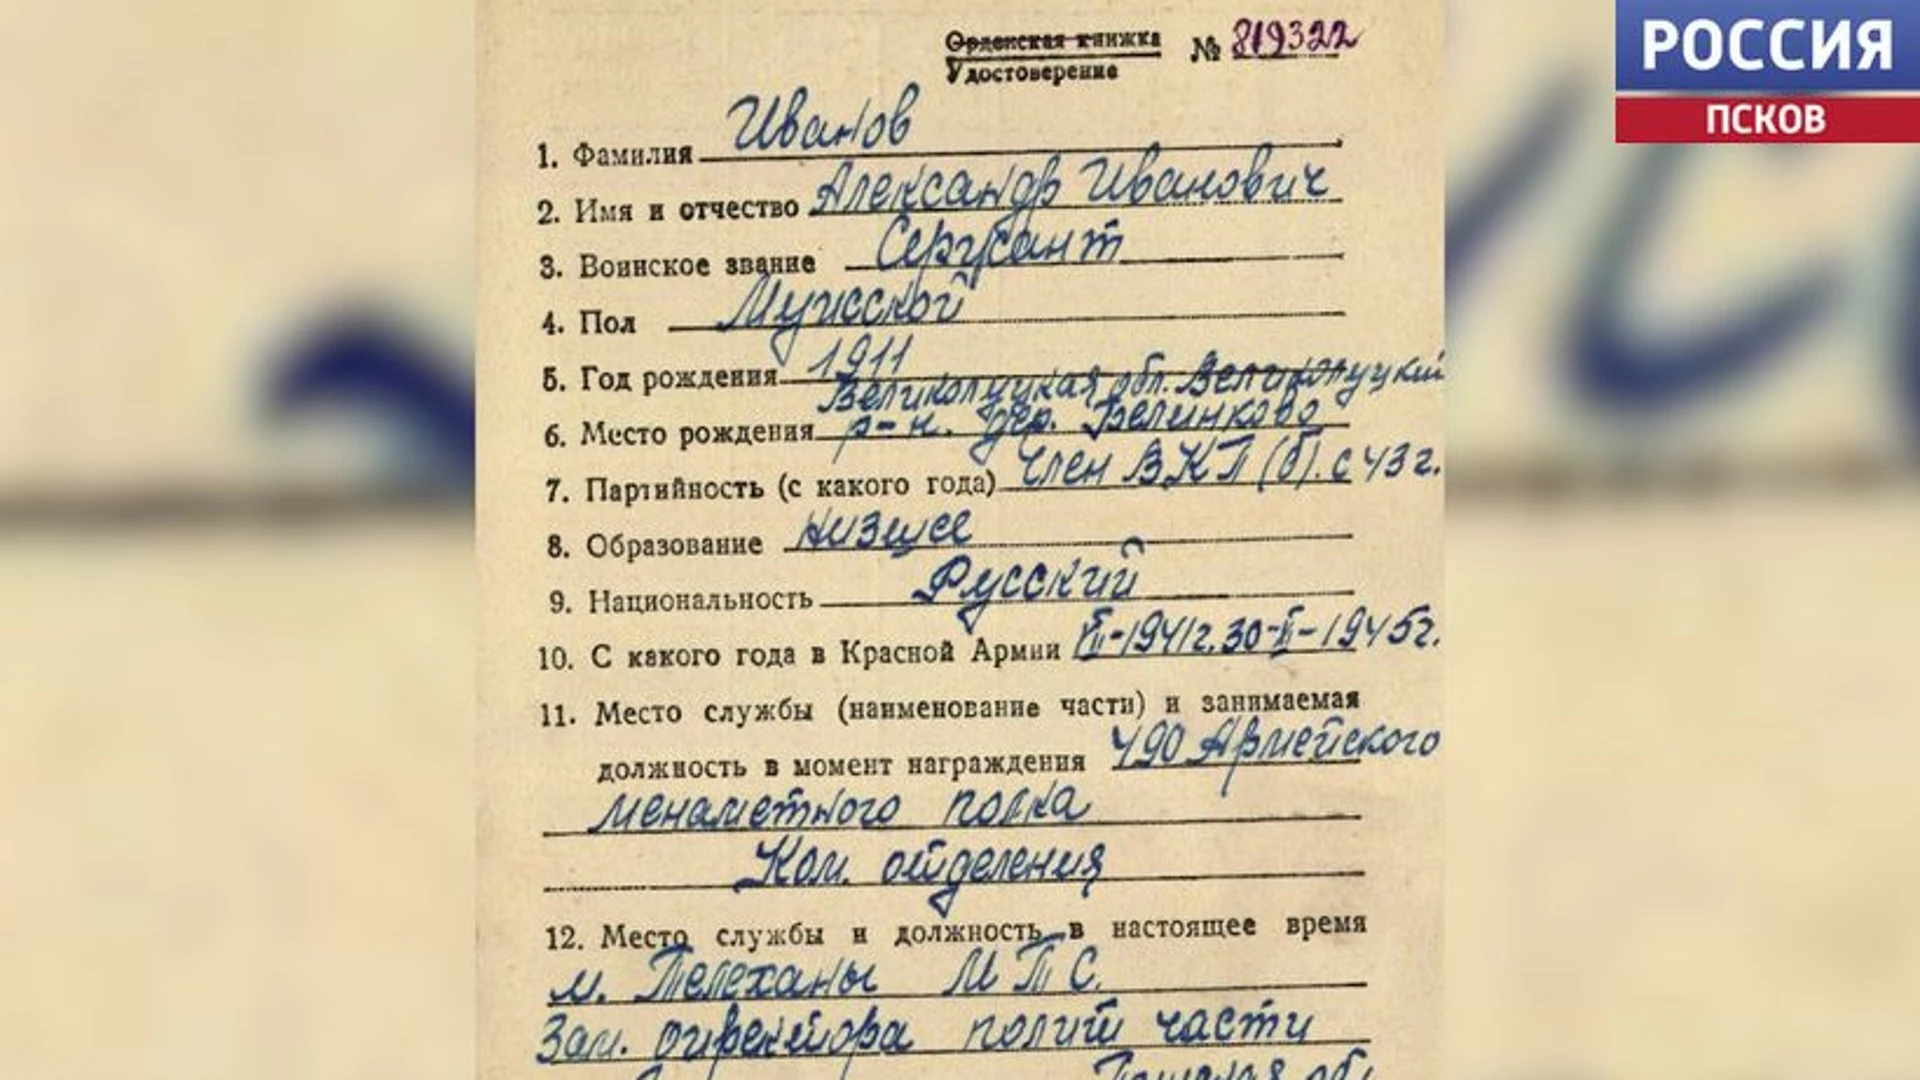 РОССИЯ
ПСКОВ
Орденская книжка
Удостоверение № 819322
1. Фамилия Иванов
2. Имя и отчество Александр Иванович
3. Воинское звание Сержант
4. Пол Мужской
5. Год рождения 1911
Великолуцкая обл. Великолуцкий
6. Место рождения р-н. дер. Белинково
7. Партийность (с какого года) Член ВКП(б). с 43 г.
8. Образование низшее
9. Национальность Русский
10. С какого года в Красной Армии -1941г. 30- -1945г.
11. Место службы (наименование части) и занимаемая
должность в момент награждения 490 Армейского
менаметного полка
Ком. отделения
12. Место службы и должность в настоящее время
м. Телеханы МТС.
Зам. директора полит части
обл